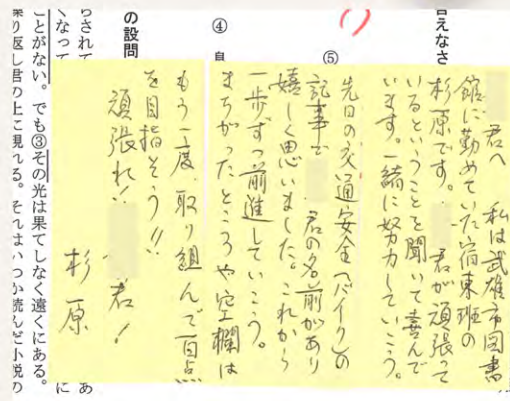 言えなさ
君へ 私は武雄市図書
館に勤めていた宿東班の
杉原です。 君が頑張って
いるということを聞いて喜んで
います。一緒に努力していこう。
⑤
先日の交通安全(バイク)の
記事で 君の名前があり
嬉しく思いました。これから
一歩ずつ前進していこう。
④
まちがったところや空欄は
もう一度、取り組んで百点
を目指そう!!
頑張れ!! 君!
杉原
の設問
らされて
くなって
ことがない。でも③その光は果てしなく遠くにある。
繰り返し君の上に現れる。それはいつか読んだ小説の